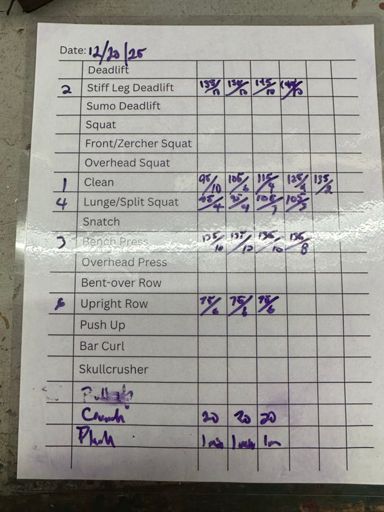 Date: 12/20/25
Deadlift
2 Stiff Leg Deadlift 135/10
Sumo Deadlift
Squat
Front/Zercher Squat
Overhead Squat
1 Clean 95/10 105/6 115/4 125/4 135/2
4 Lunge/Split Squat
Snatch
3 Bench Press 135/10 135/10 135/10 135/8
Overhead Press
Bent-over Row
Upright Row 75/6 75/6 75/6
Push Up
Bar Curl
Skullcrusher
Crunch 20 20 20
Plank 1 min 1 min 1m